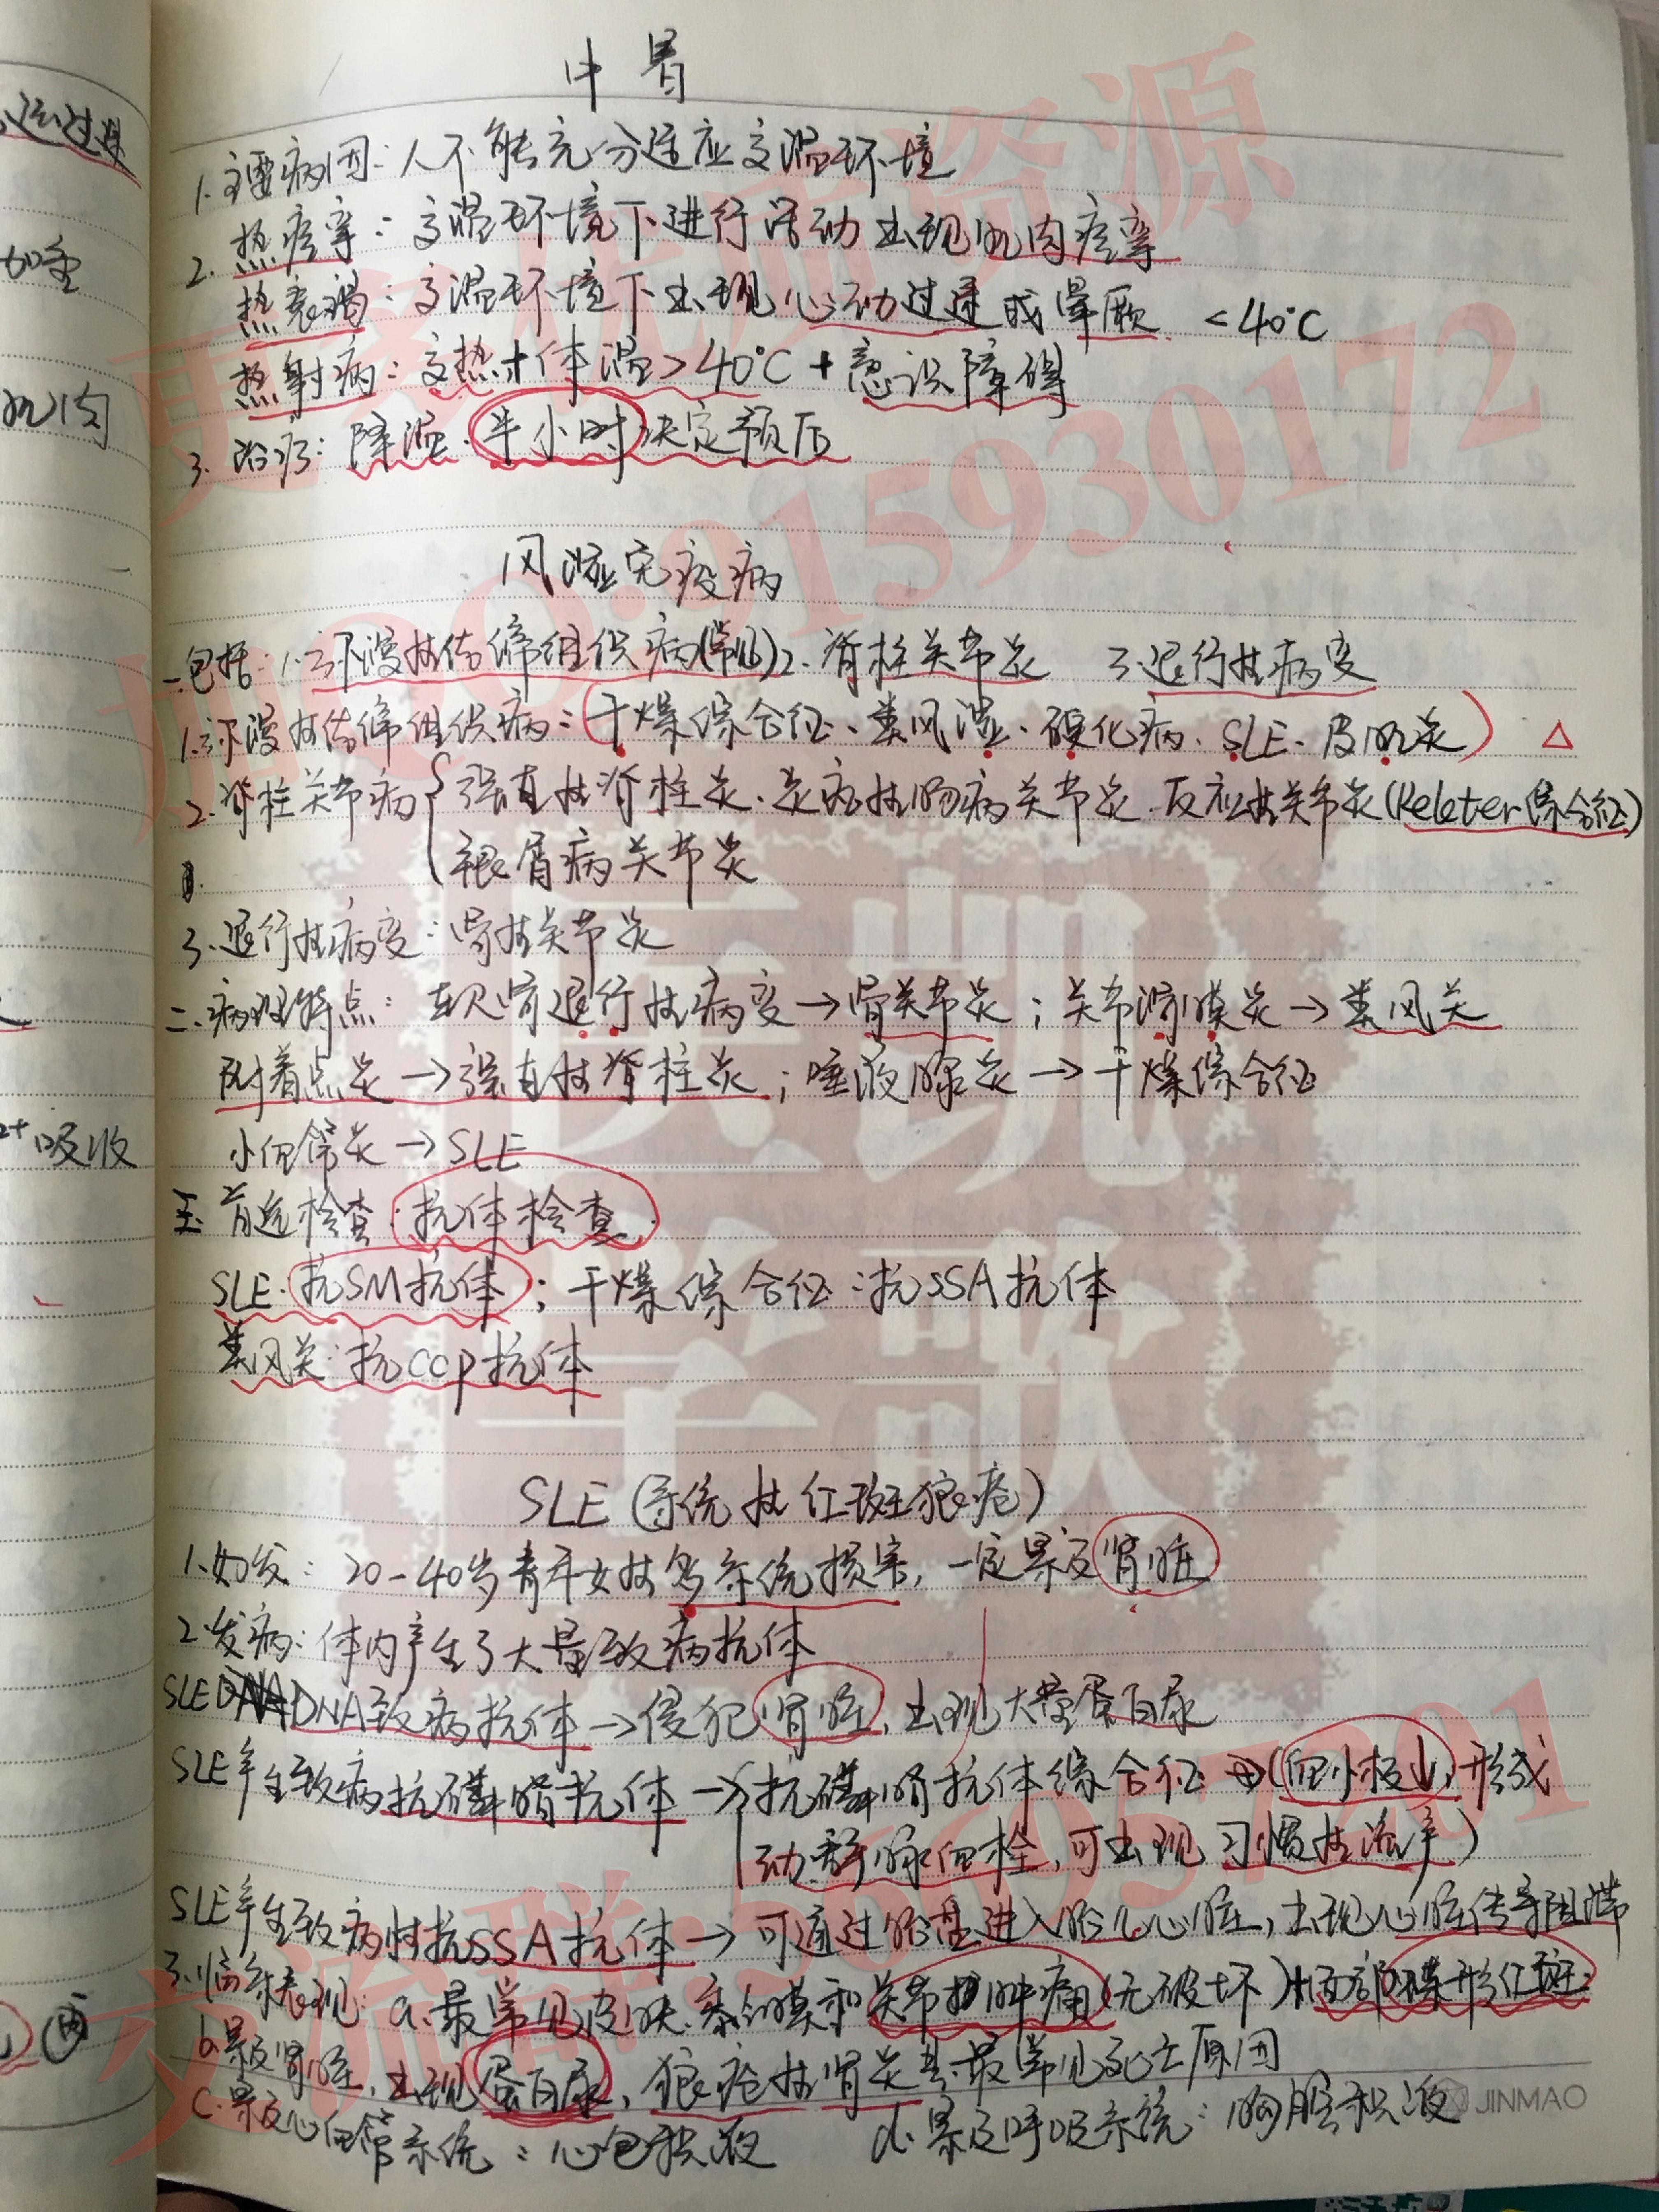 中暑
1.主要病因:人不能充分适应高温环境
2.热痉挛:高温环境下进行活动出现肌肉痉挛
热衰竭:高温环境下出现心动过速或晕厥 <40℃
热射病:高热+体温>40℃+意识障碍
3.治疗:降温.半小时决定预后
风湿免疫病
一.包括:1.弥漫性结缔组织病(常见)2.脊柱关节炎 3.退行性病变
1.弥漫性结缔组织病:(干燥综合征、类风湿、硬化病、SLE、皮肌炎) △
2.脊柱关节病{强直性脊柱炎.炎症性肠病关节炎.反应性关节炎(Releter综合征)
银屑病关节炎
3.退行性病变:骨性关节炎
二.病理特点:软骨退行性病变→骨关节炎;关节滑膜炎→类风关
附着点炎→强直性脊柱炎;唾液腺炎→干燥综合征
小血管炎→SLE
三.首选检查:抗体检查.
SLE.抗SM抗体;干燥综合征:抗SSA抗体
类风关:抗CCP抗体
SLE(系统性红斑狼疮)
1.好发:20-40岁青年女性多系统损害,一定累及肾脏
2.发病:体内产生了大量致病抗体
SLE DNA致病抗体→侵犯肾脏,出现大量蛋白尿
SLE产生致病抗磷脂抗体→{抗磷脂抗体综合征→(血小板↓,形成
动静脉血栓,可出现习惯性流产)
SLE产生致病性抗SSA抗体→可通过胎盘进入胎儿心脏,出现心脏传导阻滞
3.临床表现:a.最常见皮肤.黏膜和关节肿痛(无破坏)+面部蝶形红斑.
b.累及肾脏,出现蛋白尿,狼疮性肾炎是最常见死亡原因
c.累及心血管系统:心包积液 d.累及呼吸系统:胸腔积液
JINMAO
运过程
加重
肌肉
2+吸收
更多优质资源
加QQ:915930172
医凯
学歌